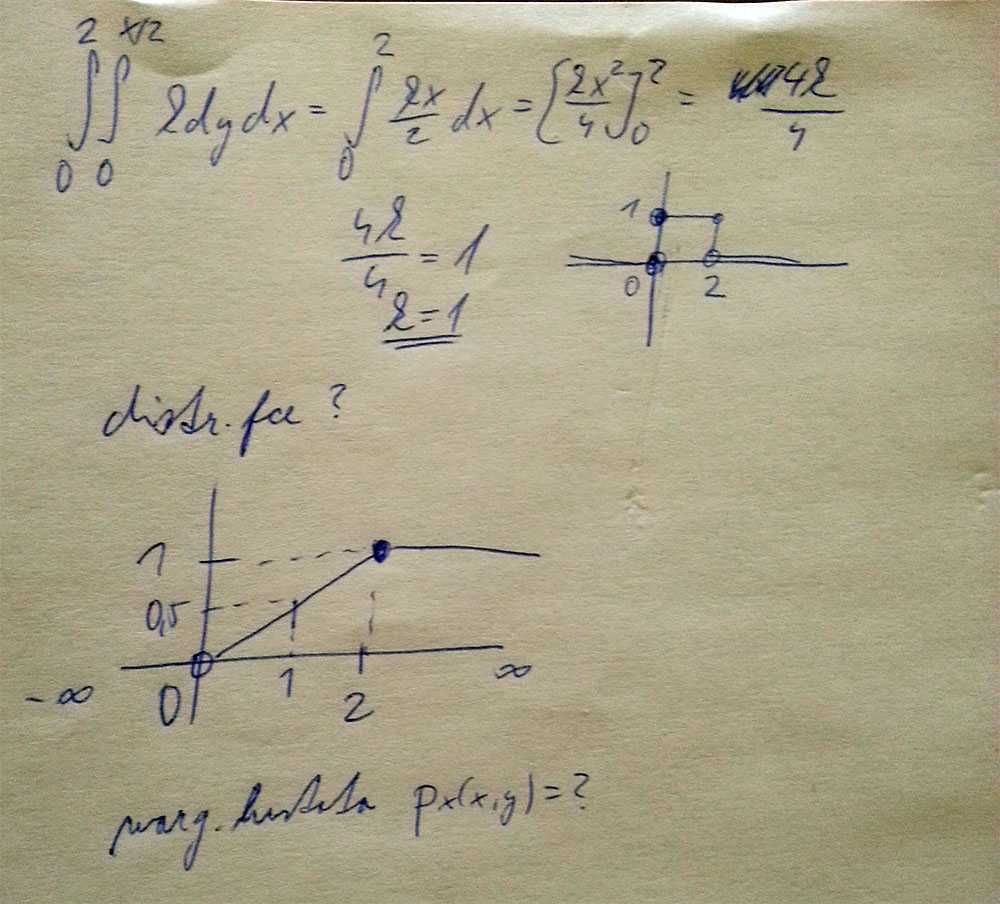 ∫₀² ∫₀^{x/2} k dy dx = ∫₀² kx/2 dx = [kx²/4]₀² = 4k/4
4k/4 = 1
k = 1
1
0 2
distr. fce ?
1
0,5
-∞ 0 1 2 ∞
marg. hustota px(x,y)=?